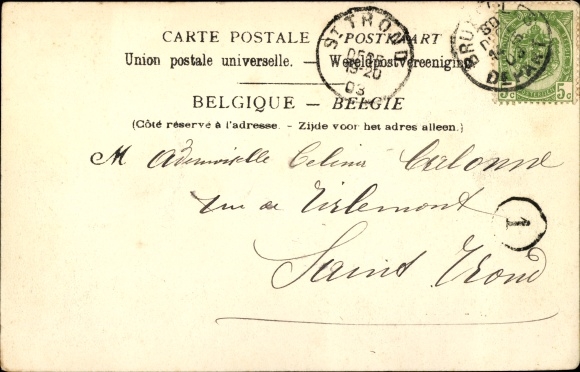 CARTE POSTALE — POSTKAART
Union postale universelle. — Wereldpostvereeniging
BELGIQUE — BELGIE
(Côté réservé à l'adresse. - Zijde voor het adres alleen.)
ST TROND
DEC
19-20
03
DEPART
5c 5c
Mademoiselle Celina
rue de Tirlemont
1
Saint Trond